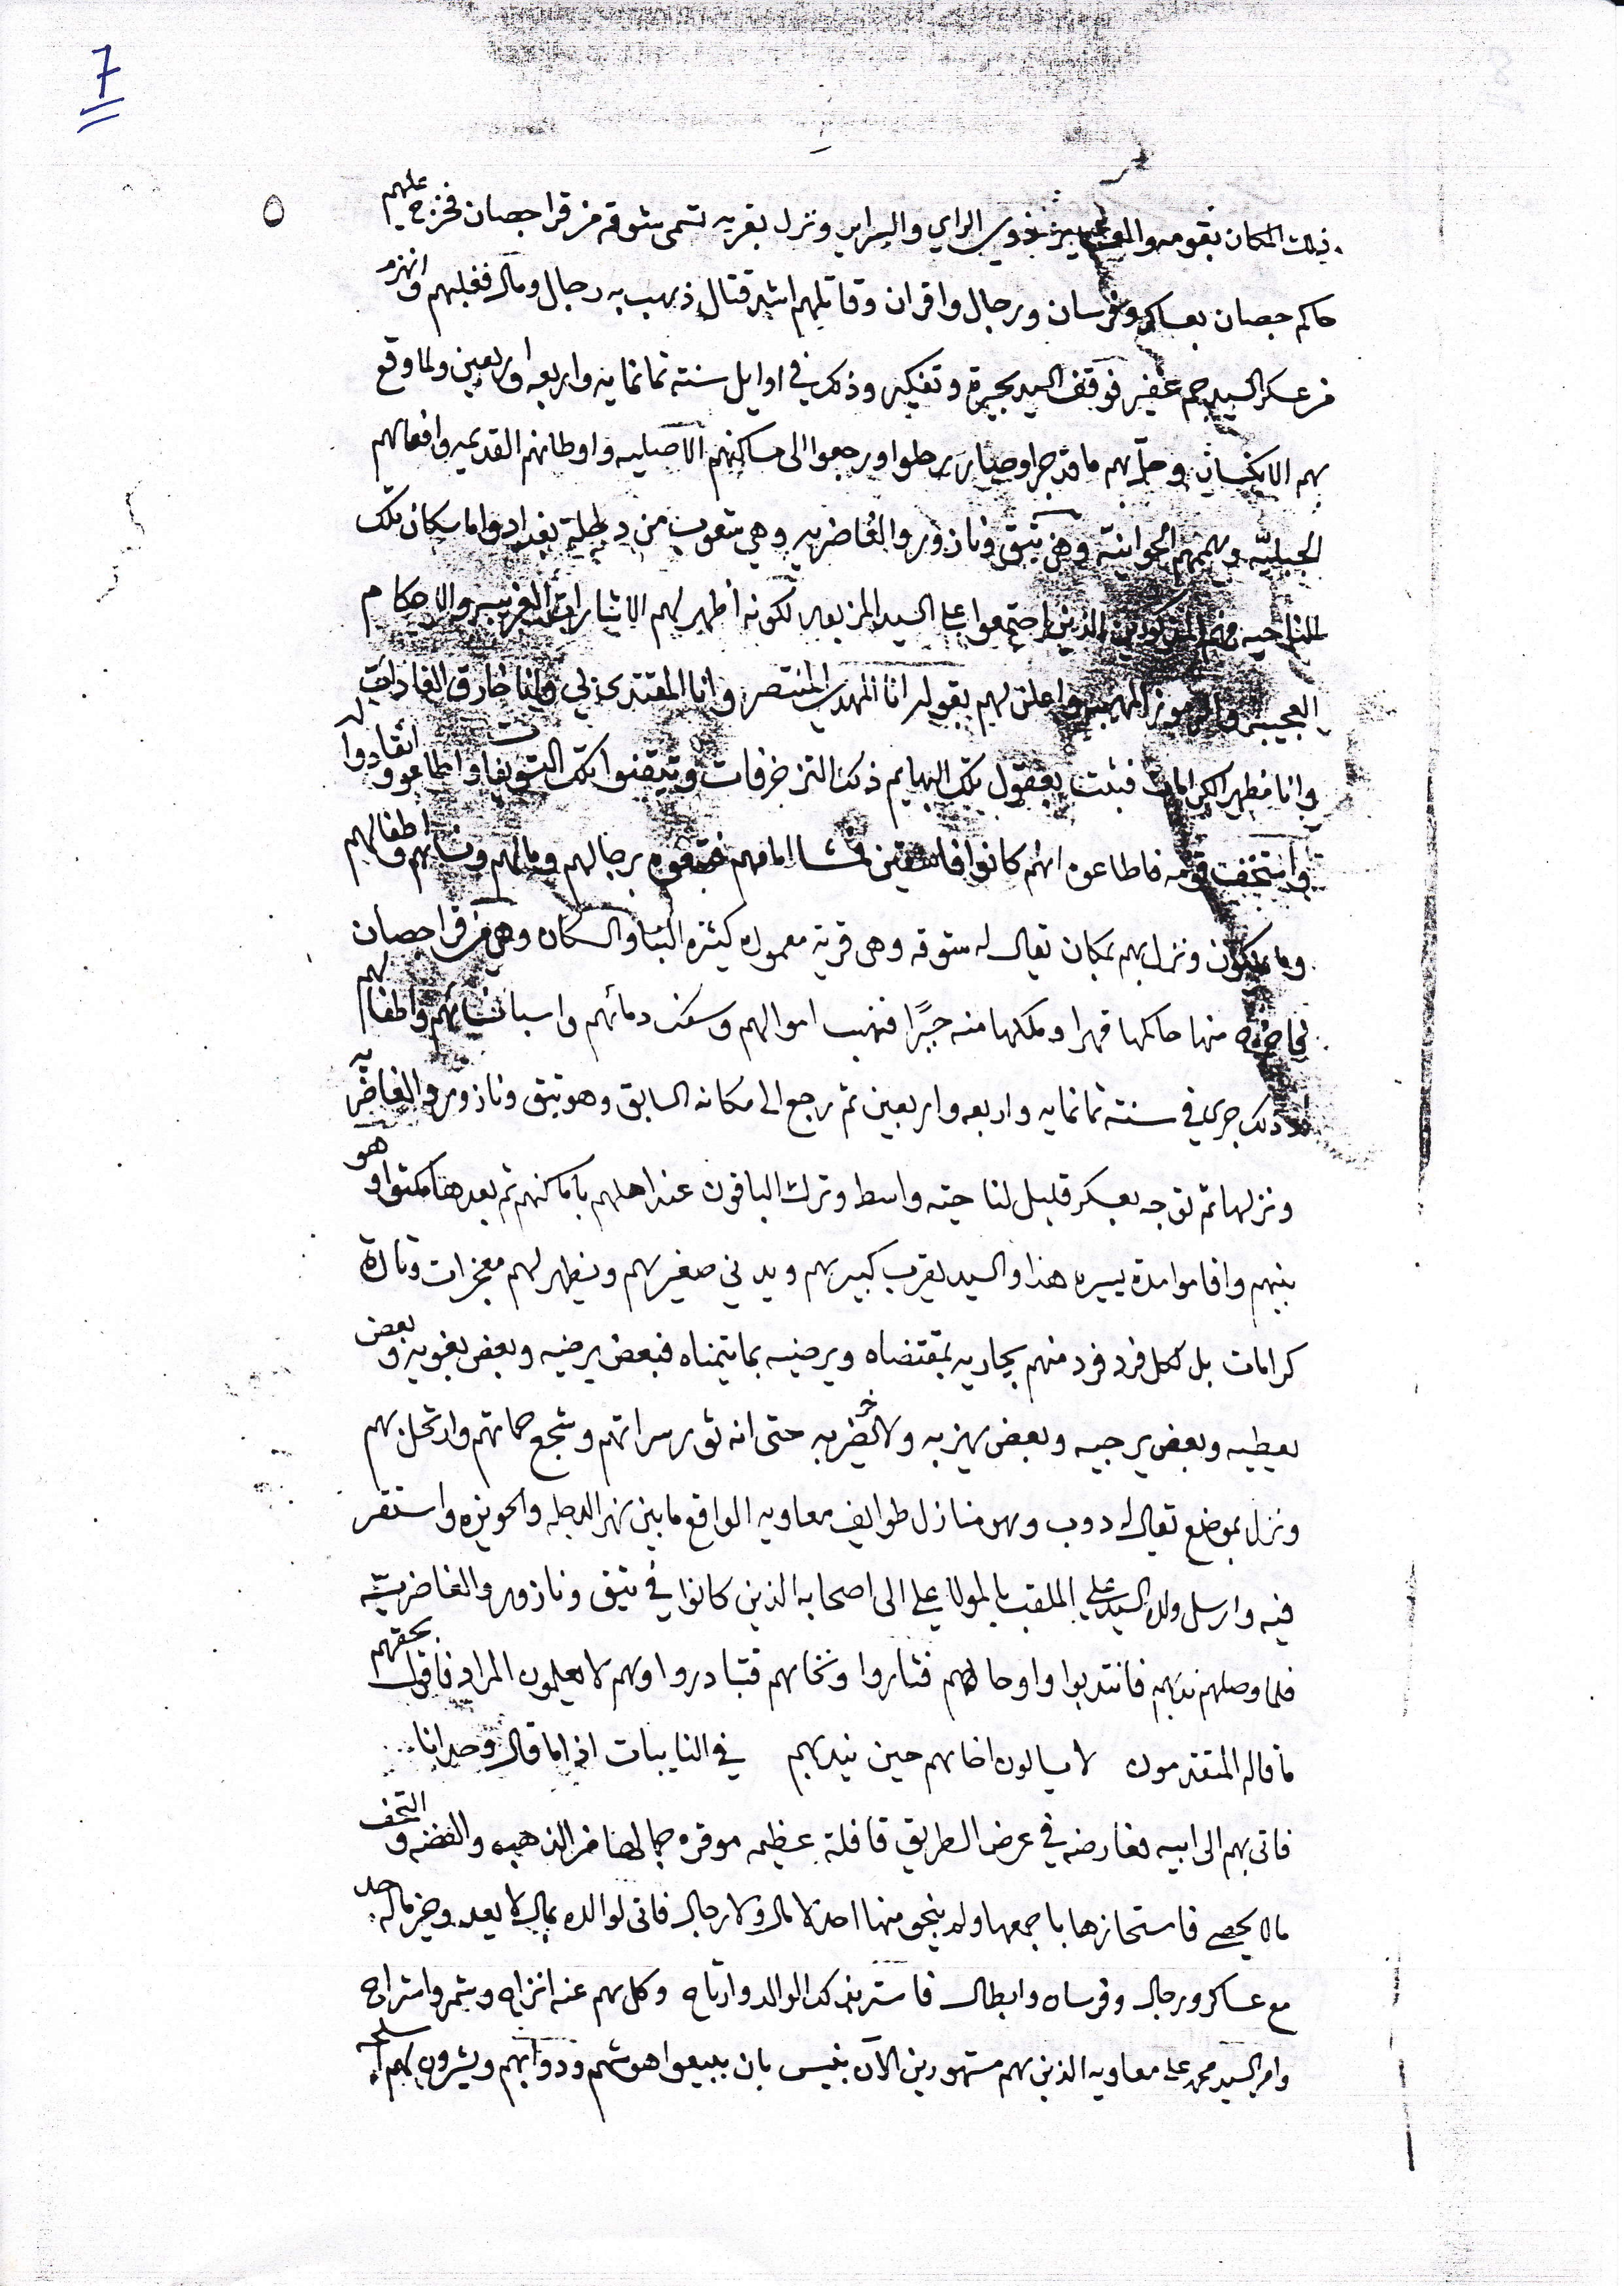 7
٥
ذلك المكان بقومه ذوي الراي والسراير ونزل بقريه تسمى شوقه من قرا جصان فخرج عليهم
حاكم جصان بعساكر وفرسان ورجال واقران وقاتلهم اشد قتال ذهب به رجال ومال فغلبهم وانهزم
من عسكر السيد جم غفير فوقف السيد بحيرة وتفكير وذلك في اوايل سنة ثمانمايه واربعه واربعين ولما وقع
بهم الانكسار وحل بهم ما قد جرا وصار رحلوا ورجعوا الى مساكنهم الاصليه واوطانهم القديمه وافعالهم
وهي ثبق ونازور والغاضريه وهي شعوب من دجلة بغداد واما سكان تلك
الناحيه الذين اجتمعوا على السيد المزبور لكونه اظهر لهم الاشارات الغريبه والاحكام
العجيبه واعلن لهم بقوله انا المهدي المنتصر وانا المقتدى بي وانا خارق العادات
وانا مظهر الكرامات فثبت بعقول تلك البهايم ذلك التزخرفات وتيقنوا تلك واطاعوه وانقادوا له
واستخف قومه فاطاعوه انهم كانوا برجالهم ومالهم ونسائهم واطفالهم
وما يملكون ونزل بهم بمكان يقال له شوقه وهى قرية معموره كثيره البنا والسكان وهي من قرا جصان
منها حاكمها قهرا وملكها منه جبرًا فنهب اموالهم وسفك دمائهم واسبا نسائهم واطفالهم
ذلك جرى في سنة ثمانمايه واربعه واربعين ثم رجع الى مكانه السابق وهو ثبق ونازور والغاضريه
ونزلها ثم توجه بعسكر قليل لناحيته واسط وترك الباقون عند اهلهم باماكنهم ثم بعدها مكثوا وهو
بينهم واقاموا مدة يسيره هذا والسيد يقرب كبيرهم ويدني صغيرهم ويظهر لهم معجزات وتارة
كرامات بل لكل فرد فرد منهم يجاريه بمقتضاه ويرضيه بما يتمناه فبعض يرضيه وبعض يغويه وبعض
يعطيه وبعض يرجيه وبعض يهزبه ولاخر يضربه حتى انه ثور سراتهم وشجع حماتهم وارتحل بهم
ونزل بموضع يقال له دوب وهو منازل طوايف معاويه الواقع مابين نهر الدجله والحويزه واستقر
فيه وارسل ولده السيد علي الملقب بالمولا علي الى اصحابه الذين كانوا في ثبق ونازور والغاضريه
فلما وصلهم ندبهم فانتدبوا واوحا لهم فثاروا ونخاهم فتبادروا وهم لا يعلمون المراد فاقول بحقهم
ما قاله المتقدمون لا يسالون اخاهم حين يندبهم في النايبات اذا ما قال وحدانا
فاتى بهم الى ابيه فعارضه في عرض الطريق قافلة عظيمه موقره جمالها من الذهب والفضه والتحف
مالا يحصى فاستحازها باجمعها ولم ينجو منها احد لا مال ولا رجال فاتى لوالده بمال لا يعد وخير ماله حد
مع عساكر ورجال وفرسان وابطال فاستر بذلك الوالد وارتاح وكل هم عنه انزاح وشمر واستراح
وامر السيد محمد على معاويه الذين هم مشهورين الآن بنيس بان يبيعوا هوشهم ودوابهم ويشرون لهم اسلحه